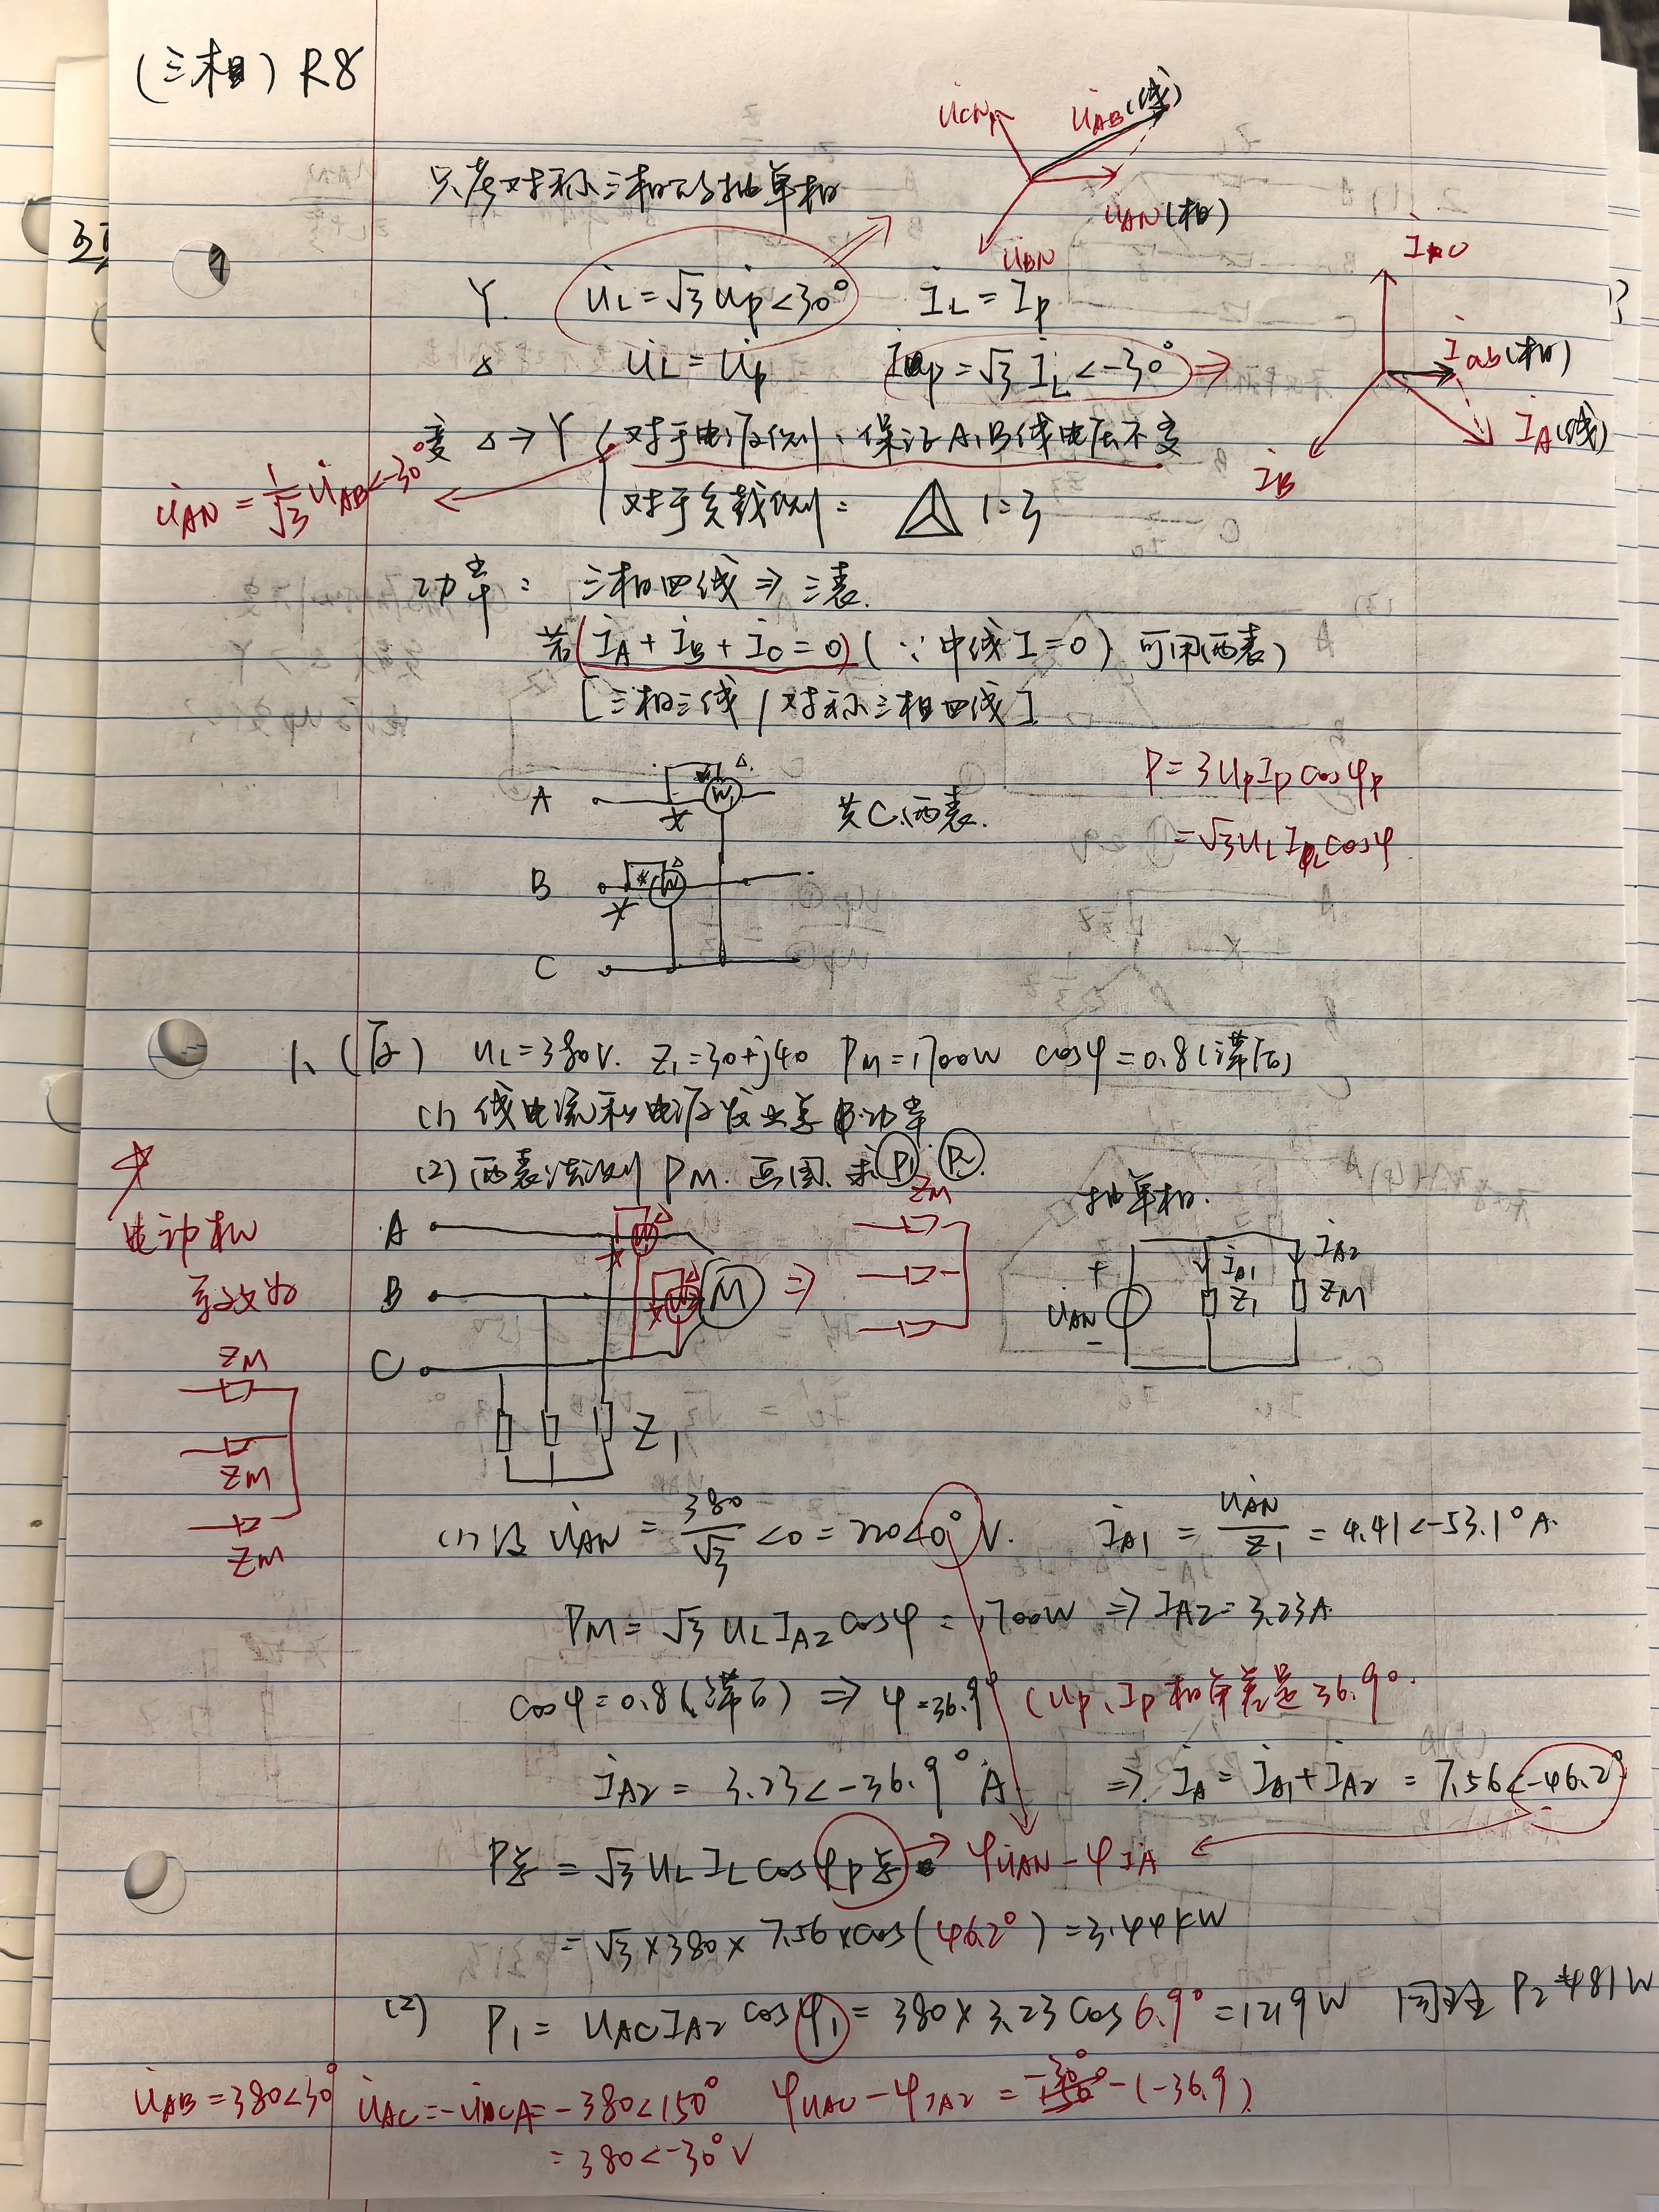 (三相) R8
只考对称三相的抽单相
U̇CN U̇AB(线)
U̇AN(相)
U̇BN
Y U̇L=√3 U̇p<30° İL=İp
△ U̇L=U̇p İp=√3 İL<-30°
İab(相)
İA(线)
İB
变 △→Y 对于电源侧:保证A,B线电压不变
对于负载侧: 1=3
U̇AN=1/√3 U̇AB<-30°
功率: 三相四线⇒三表.
若(İA+İB+İC=0)(∵中线I=0)可用(两表)
[三相三线/对称三相四线]
P=3UpIpcosφp
=√3ULILcosφ
A * W1 △
共C,两表.
B * W △
C
1、(反) UL=380V. Z1=30+j40 PM=1700W cosφ=0.8(滞后)
(1) 线电流和电源发出总功率
(2) 两表法测PM. 画图. 求P1 P2.
☆
电动机
等效为
ZM
ZM
ZM
A
B M ⇒
C
Z1
ZM
抽单相.
+ U̇AN - İA1 Z1 İA2 ZM
(1) 设 U̇AN=380/√3<0=220<0°V. İA1=U̇AN/Z1=4.41<-53.1°A.
PM=√3ULIA2cosφ=1700W ⇒ IA2=3.23A
cosφ=0.8(滞后) ⇒ φ=36.9° (Up、Ip相角差是36.9°.
İA2=3.23<-36.9°A. ⇒ İA=İA1+İA2=7.56<-46.2°
P总=√3ULILcosφp总 → φU̇AN-φİA
=√3×380×7.56×cos(46.2°)=3.44kW
(2) P1=UACIA2cosφ1=380×3.23cos6.9°=1219W 同理P2=481W
U̇AB=380<30° U̇AC=-U̇CA=-380<150° φUAC-φIA2=-30°-(-36.9)
=380<-30°V